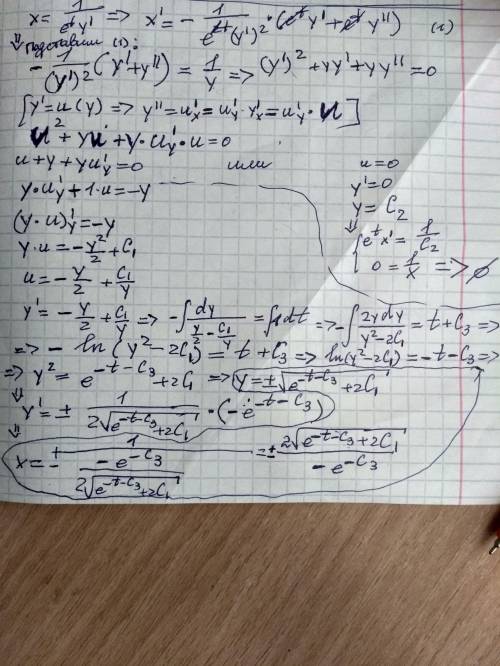 x = 1/(eᵗy') => x' = - 1/(eᵗ(y')²) · (eᵗy' + eᵗy'') (1)
⇓ подставим (1):
- 1/(y')² (y' + y'') = 1/y => (y')² + yy' + yy'' = 0
[y' = u(y) => y'' = u'ₓ = u'ᵧ · y'ₓ = u'ᵧ · u]
u² + yu + y · u'ᵧ · u = 0
u + y + yu'ᵧ = 0 или u = 0
y · u'ᵧ + 1 · u = -y y' = 0
(y · u)'ᵧ = -y y = C₂
y · u = - y²/2 + C₁ ⇓ { eᵗx' = 1/C₂
u = - y/2 + C₁/y { 0 = 1/x => ∅
y' = - y/2 + C₁/y => -∫ dy/(y/2 - C₁/y) = ∫1dt => -∫ 2ydy/(y² - 2C₁) = t + C₃ =>
=> - ln(y² - 2C₁) = t + C₃ => ln(y² - 2C₁) = -t - C₃ =>
=> y² = e^(-t-C₃) + 2C₁ => y = ±√(e^(-t-C₃) + 2C₁)
⇓ y' = ± 1/(2√(e^(-t-C₃) + 2C₁)) · (-e^(-t-C₃))
⇓ x = ± 1/(-e^(-C₃)/(2√(e^(-t-C₃) + 2C₁))) = ± 2√(e^(-t-C₃) + 2C₁)/(-e^(-C₃))